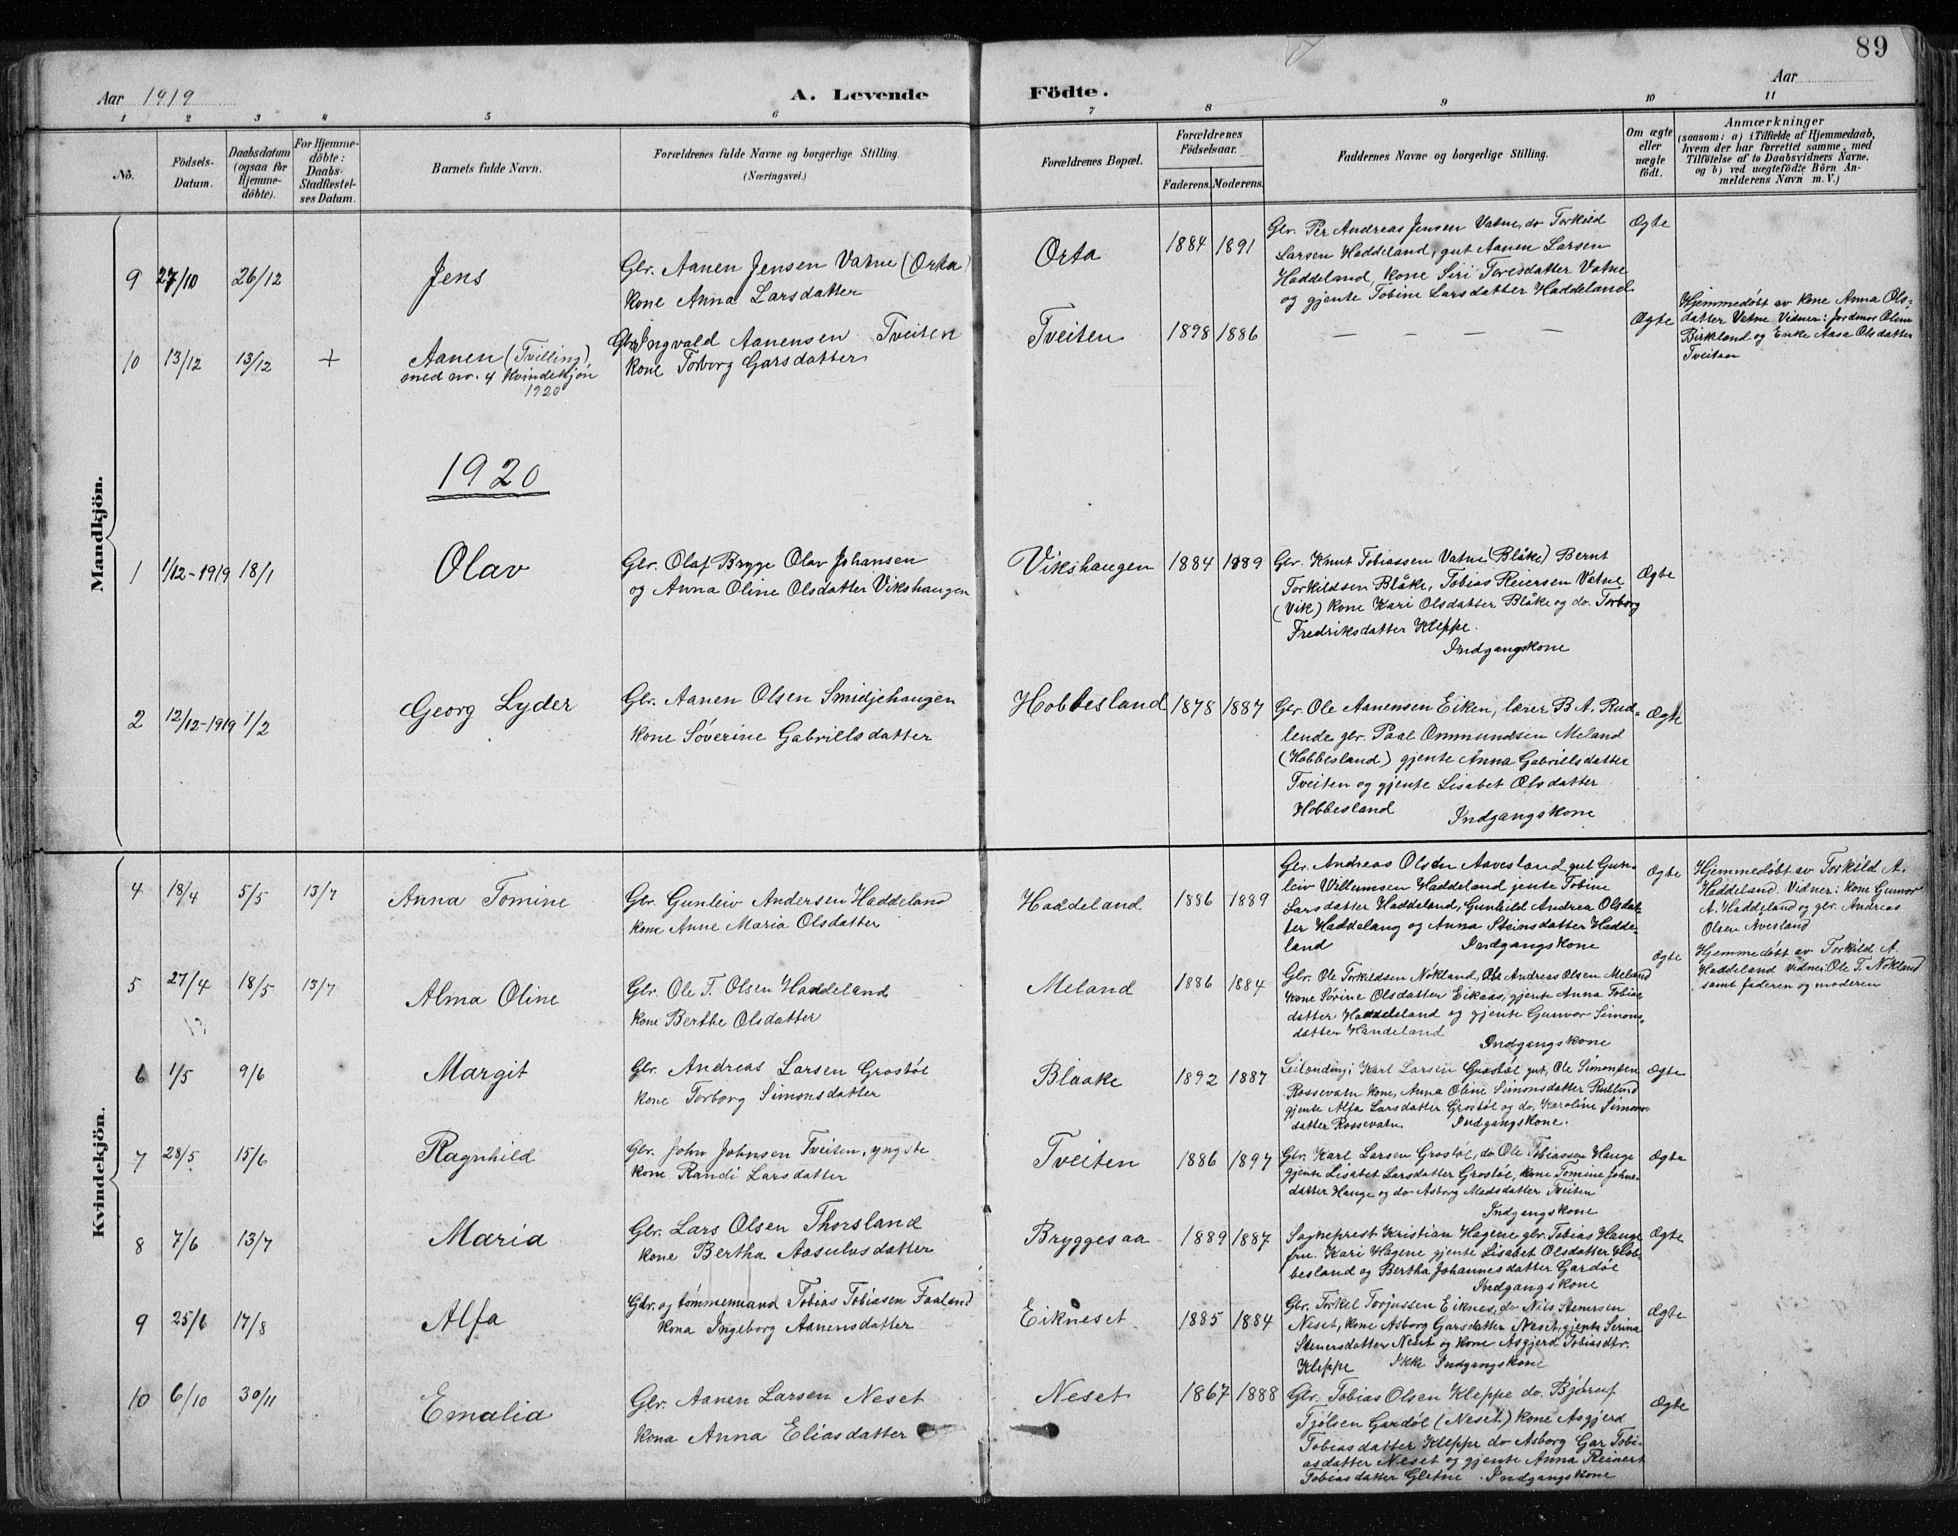 89
Aar 1919
A. Levende
Födte.
Aar
1 2 3 4 5 6 7 8 9 10 11
No.
Födsels-
Datum.
Daabsdatum
(ogsaa for
Hjemme-
döbte).
For Hjemme-
döbte:
Daabs-
Stadfæstel-
ses Datum.
Barnets fulde Navn.
Forældrenes fulde Navne og borgerlige Stilling.
(Næringsvei.)
Forældrenes Bopæl.
Forældrenes
Födselsaar.
Faderens. Moderens.
Faddernes Navne og borgerlige Stilling.
Om ægte
eller
uægte
födt.
Anmærkninger
(saasom: a) i Tilfælde af Hjemmedaab,
hvem der har forrettet samme, med
Tilföielse af to Daabsvidners Navne.
og b) ved uægtefödte Börn An-
melderens Navn m. V.)
Mandkjön.
9 27/10 26/12
Jens
Gbr. Aanen Jensen Vatne (Orta)
kone Anna Larsdatter
Orta
1884 1891
Gbr. Per Andreas Jensen Vatne, do Torkild
Larsen Haddeland, gut Aanen Larsen
Haddeland, kone Siri Toresdatter Vatne
og gjente Tobine Larsdatter Haddeland
Ægte
10 13/12 13/12 +
Aanen (Tvilling)
med no. 4 Kvindekjøn
1920
Gbr. Ingvald Aanensen Tveiten
kone Torborg Garsdatter
Tveiten
1898 1886
— — — —
Ægte
Hjemmedøbt av kone Anna Ols-
datter Vatne Vidner: Jordmor Oline
Birkland og Enke Aasa Olsdatter
Tveiten
1920
1 1/12-1919 18/1
Olav
Gbr. Olaf Brygge Olav Johansen
og Anna Oline Olsdatter Vikshaugen
Vikshaugen
1884 1889
Gbr. Knut Tobiassen Vatne (Blåke) Bernt
Torkildsen Blåke, Tobias Reiersen Vatne
(Vik) kone Kari Olsdatter Blåke og do. Torborg
Fredriksdatter Kleppe.
Indgangskone
Ægte
2 12/12-1919 1/2
Georg Lyder
Gbr. Aanen Olsen Smidjehaugen
kone Söverine Gabriellsdatter
Hobbesland
1878 1887
Gbr. Ole Aanensen Eiken, lærer B A. Rud-
lende gbr. Paal Ommundsen Meland
(Hobbesland) gjente Anna Gabriellsdatter
Tveiten og gjente Lisabet Olsdatter
Hobbesland Indgangskone
Ægte
Kvindekjön.
4 18/4 5/5 13/7
Anna Tomine
Gbr. Gunleiv Andersen Haddeland
kone Anne Maria Olsdatter
Haddeland
1886 1889
Gbr. Andreas Olsen Aavesland, gut Gun-
leiv Villumsen Haddeland jente Tobine
Larsdatter Haddeland, Gunhild Andrea Olsdat-
ter Haddeland og Anna Steinsdatter Hadde-
land Indgangskone
Ægte
Hjemmedøbt av Torkild A.
Haddeland. Vidner: kone Gunvor
A. Haddeland og gbr. Andreas
Olsen Avesland
5 27/4 18/5 13/7
Alma Oline
Gbr. Ole T. Olsen Haddeland
kone Berthe Olsdatter
Meland
1886 1884
Gbr. Ole Torkildsen Nökland, Andreas Olsen Meland
kone Sörine Olsdatter Eikaas, gjente Anna Tobias
datter Haddeland og gjente Gunvor Simons-
datter Handeland
Indgangskone
Ægte
Hjemmedøbt av Torkild A.
Haddeland Vidner: Ole T. Nökland
samt faderen og moderen
6 1/5 9/6
Margit
Gbr. Andreas Larsen Grostöl
kone Torborg Simonsdatter
Blaake
1892 1887
Leilending: Karl Larsen Grostöl gut, Ole Simonsen
Rossevatn kone, Anna Oline Simonsdatter Rudlend
gjente Alfa Larsdatter Grostöl og do, Karoline Simons-
datter Rossevatn Indgangskone.
Ægte
7 28/5 15/6
Ragnhild
Gbr. John Johnsen Tveiten, yngste
kone Randi Larsdatter
Tveiten
1886 1897
Gbr. Karl Larsen Grostöl, do Ole Tobiassen Hauge
gjente Lisabet Larsdatter Grostöl, kone Tomine Johns-
datter Hauge og do Asborg Madsdatter Tveiten
Indgangskone
Ægte
8 7/6 13/7
Maria
Gbr. Lars Olsen Thorsland
kone Bertha Aasulvsdatter
Bryggesaa
1889 1887
Sogneprest Kristian Hagene gbr. Tobias Hauge
fru. Kari Hagene gjente Lisabet Olsdatter Hob-
besland og Bertha Johannesdatter Gardöl
Indgangskone
Ægte
9 25/6 17/8
Alfa
Gbr. og tömmermand Tobias Tobiasen Faaland
kona Ingeborg Aanensdatter
Eikneset
1885 1884
Gbr. Torkel Torjussen Eiknes, do Nils Stenersen
Neset, kone Asborg Garsdatter Neset, gjente Serina
Stenersdatter Neset og kone Asgjerd Tobiasdtr.
Kleppe Ikke Indgangskone
Ægte
10 6/10 30/11
Emalia
Gbr. Aanen Larsen Neset
kona Anna Eliasdatter
Neset
1867 1888
Gbr. Tobias Olsen Kleppe do. Björuf
Tjölsen Gardöl (Neset) kone Asgjerd
Tobiasdatter Kleppe do Asborg Gar Tobi-
asdatter Neset og gjente Anna Reinert
Tobiasdatter Gletne Indgangskone
Ægte